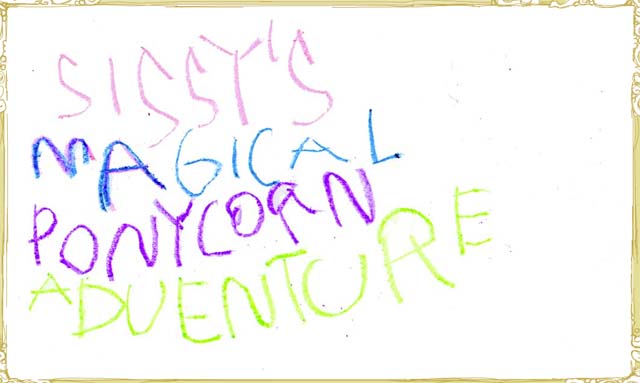 SISSY'S
MAGICAL
PONYCORN
ADVENTURE